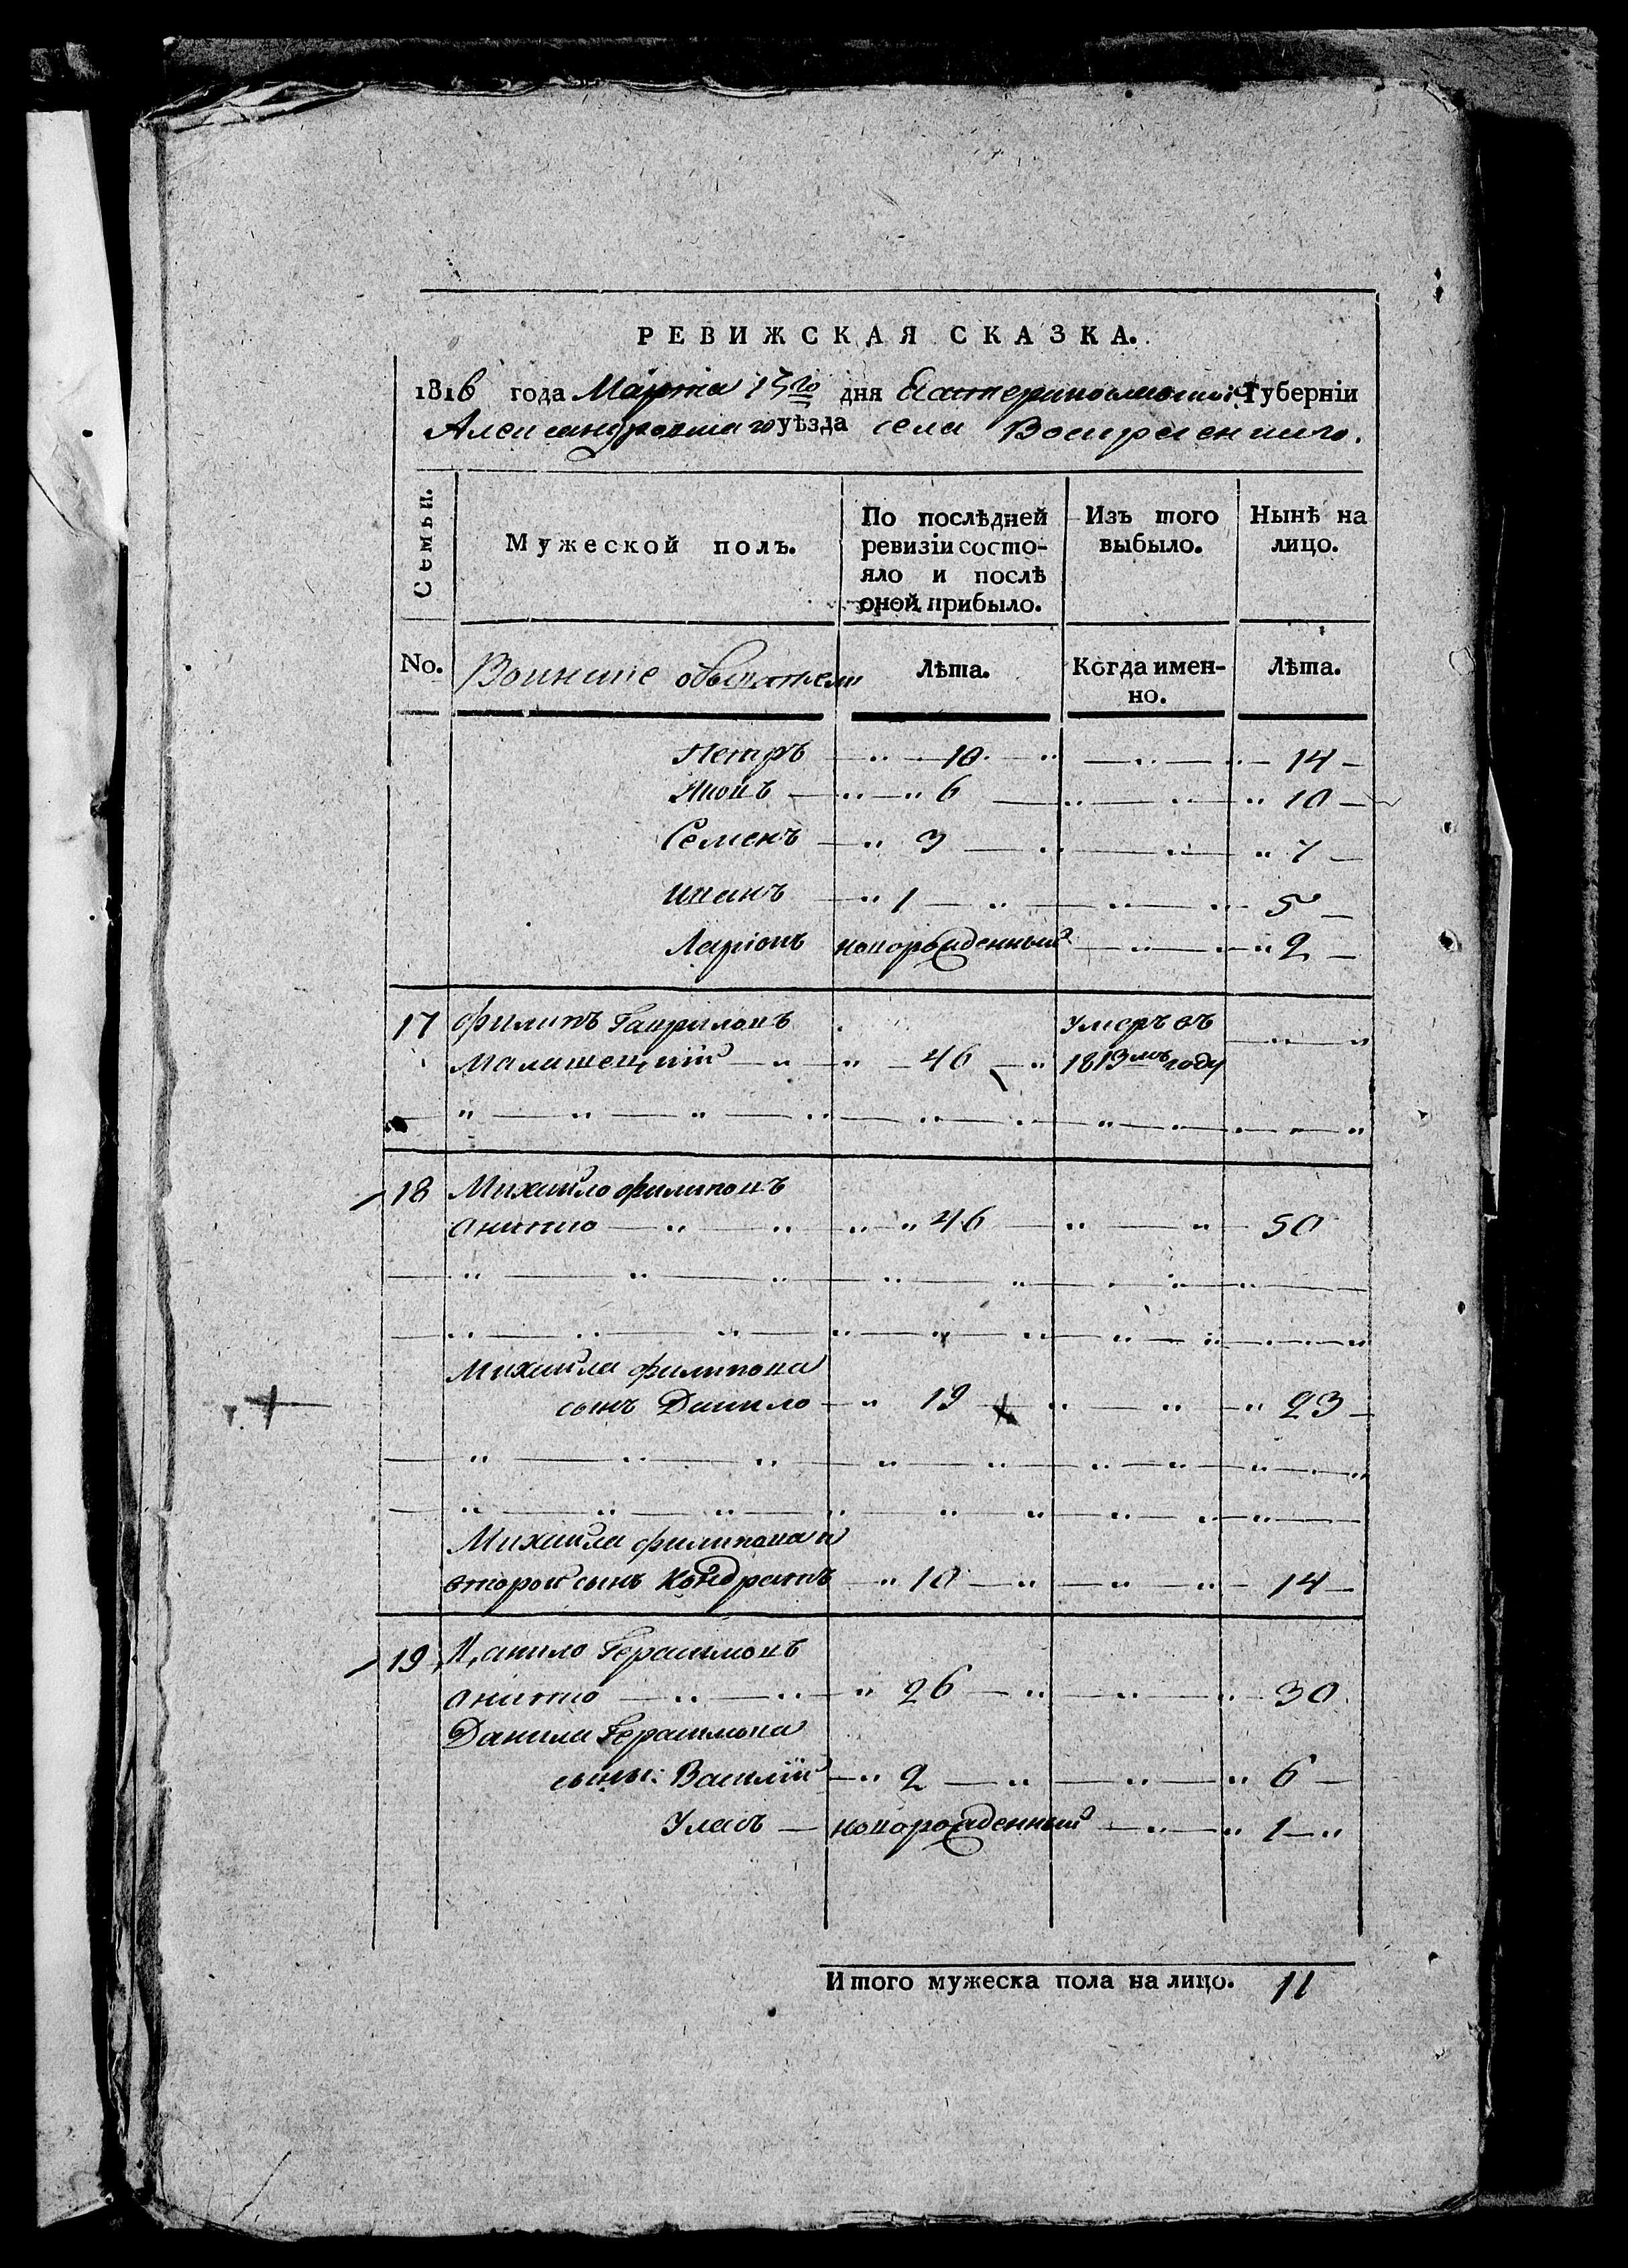 РЕВИЖСКАЯ СКАЗКА.
1816 года Марта 15го дня Екатеринославской Губерніи
Александровскаго уѣзда села Воскресенскаго.
Семьи. Мужеской полъ. По послѣдней ревизіи состояло и послѣ оной прибыло. Изъ того выбыло. Нынѣ на лицо.
No. Воинские обыватели Лѣта. Когда именно. Лѣта.
Петръ 10 14
Яковъ 6 10
Семенъ 3 7
Иванъ 1 5
Ларіонъ новорожденный 2
17 Филипъ Гавриловъ умеръ въ
46 1813мъ году
18 Михайло Филиповъ
46 50
Михайла Филипова
сынъ Данило 19 23
Михайла Филипова
второй сынъ Кондратъ 10 14
19 Данило Герасимовъ
26 30
Данила Герасимова
сыны: Василій 2 6
Уласъ новорожденный 1
Итого мужеска пола на лицо. 11